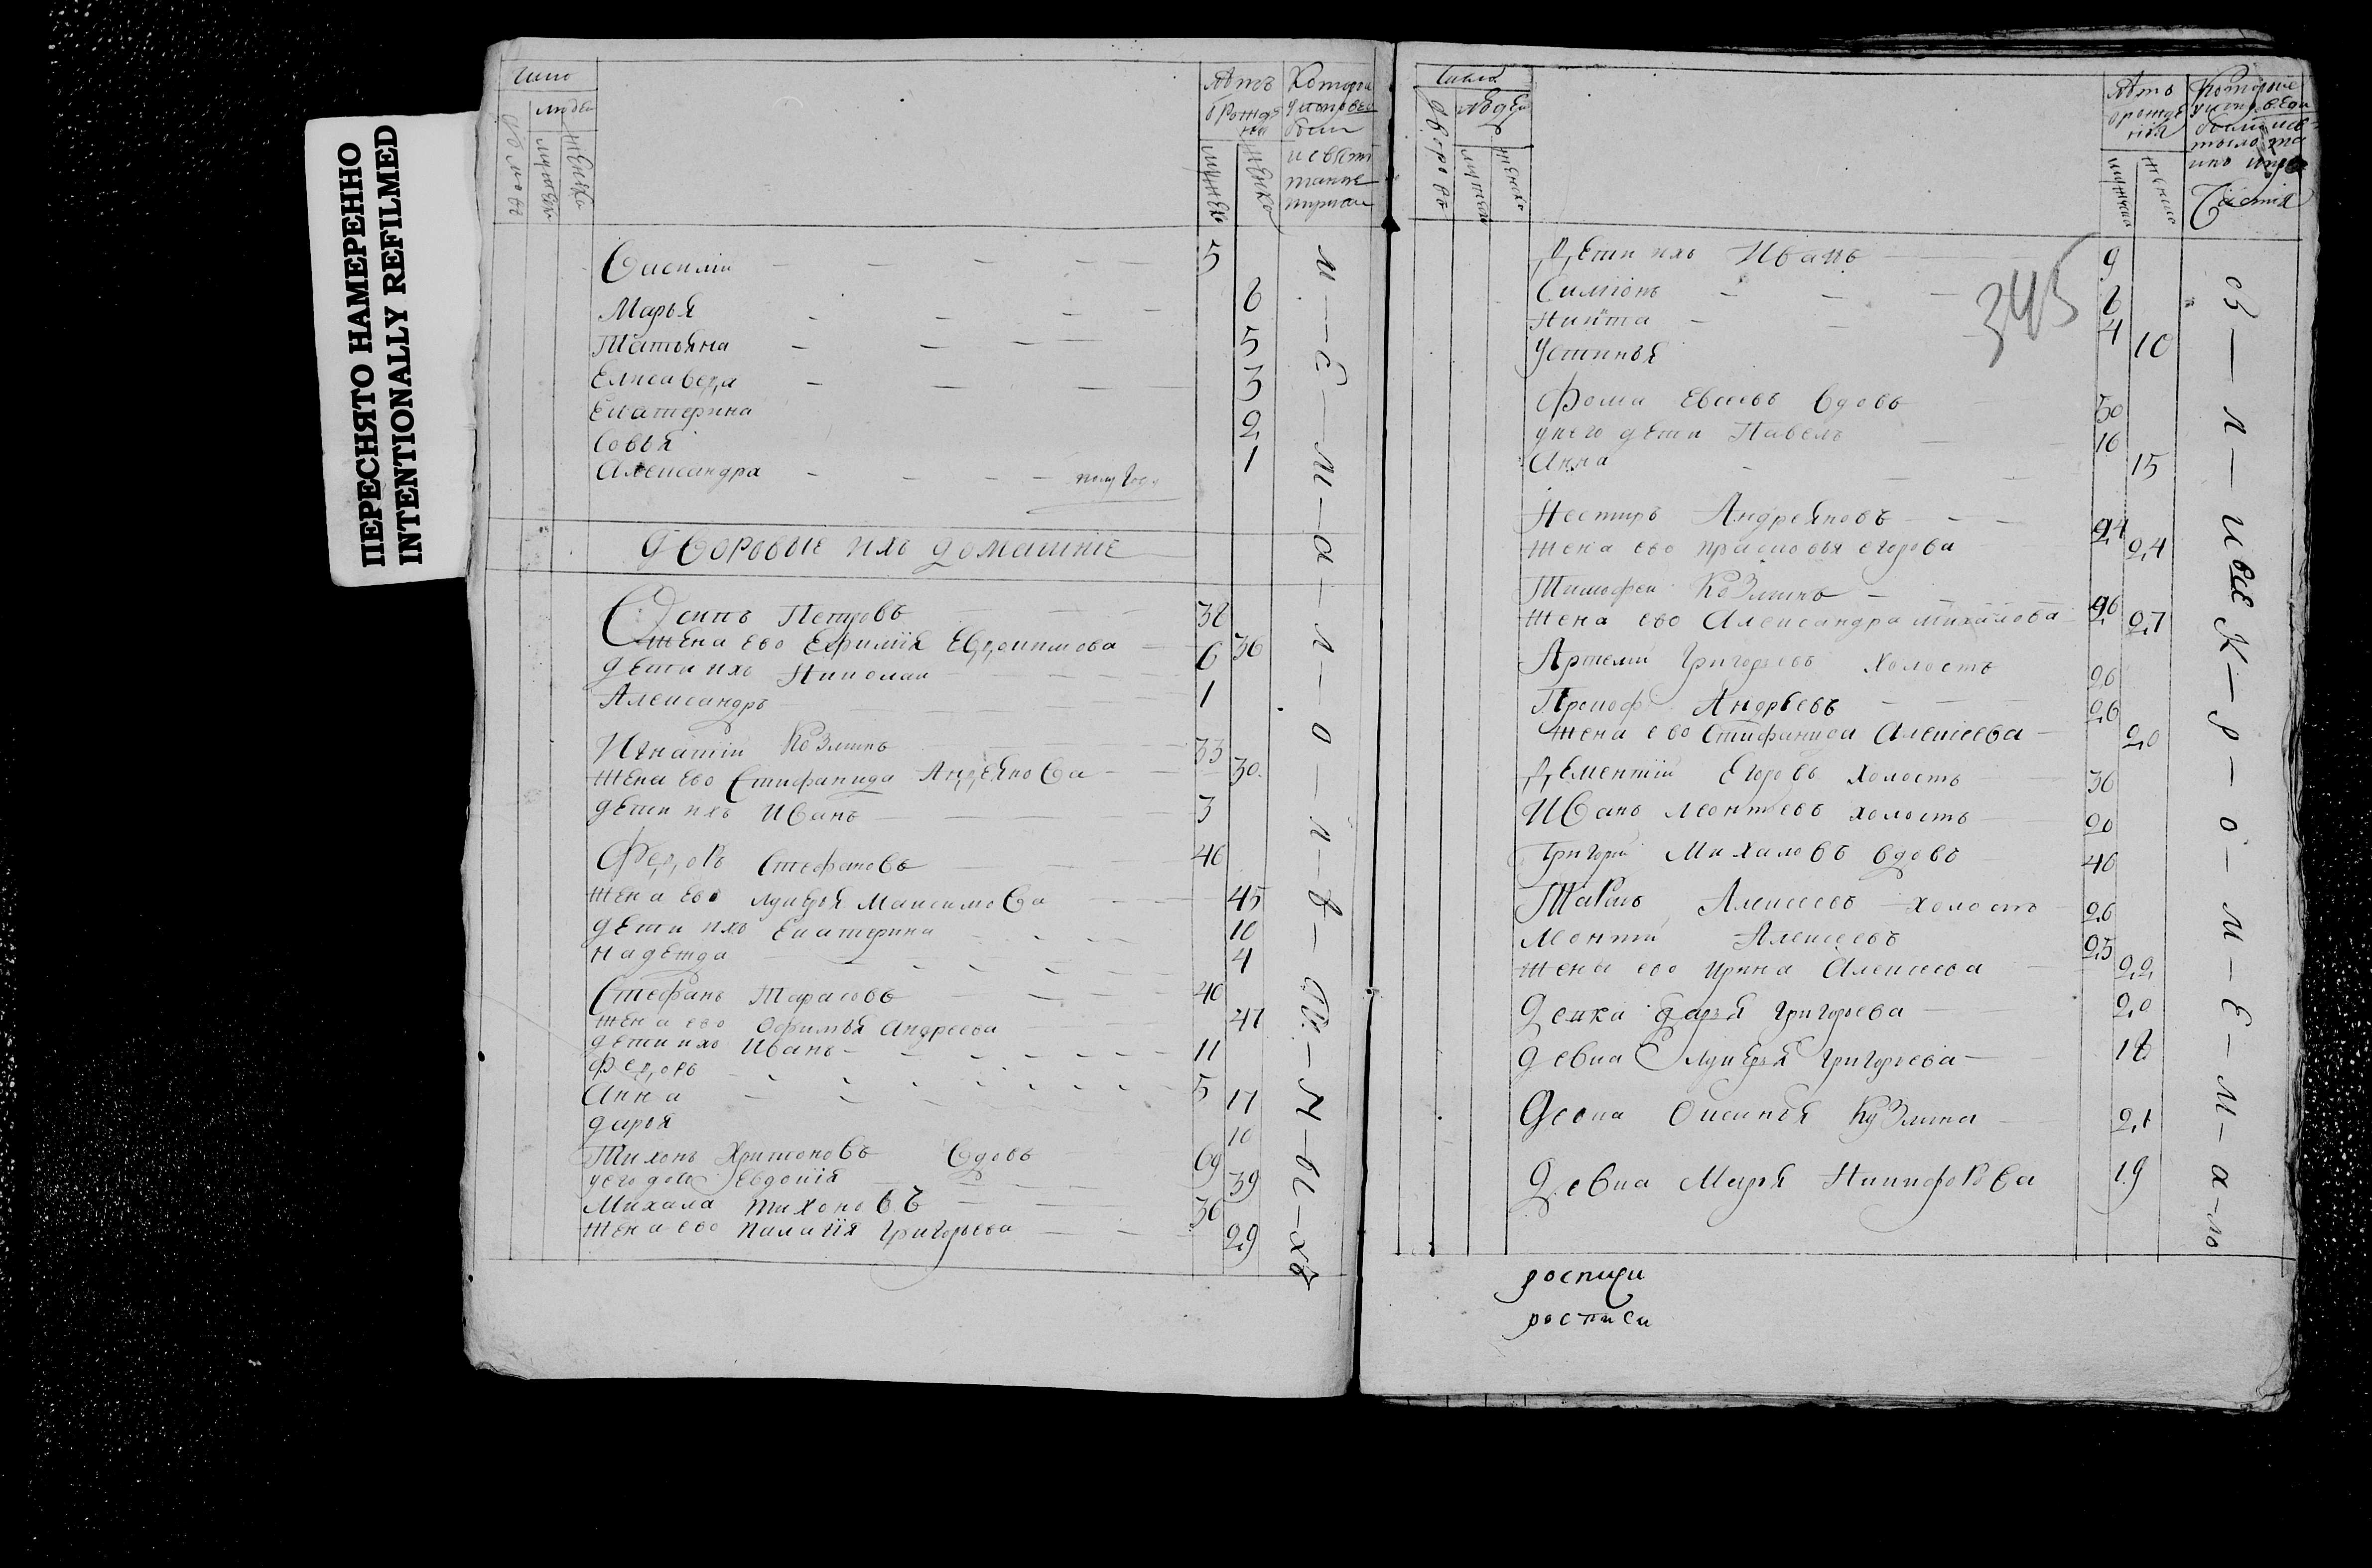 ПЕРЕСНЯТО НАМЕРЕННО
INTENTIONALLY REFILMED
число
людей
мужеска
женска
лѣтъ
о рожде
нии
мужеска
женска
Которы
у исповед
были
и святы
таине
причас
Василий 5
Марья 6
Татьяна 5
Елисавеѳа 3
Екатерина 2
Совья 1
Александра полугоду
дворовые ихъ домашние
Осипъ Петровъ 38
жена ево Ефимия Евдокимова 36
дети ихъ Николаи 6
Александръ 1
Игнатии Козминъ 33
жена ево Стифанида Андреянова 30
дети ихъ Иванъ 3
Федоръ Стефановъ 46
жена ево лукерья Максимова 45
дети ихъ Екатерина 10
надежда 4
Стефанъ Тарасовъ 40
жена ево Офимья Андреева 47
дети ихъ Иванъ 11
Федоръ 5
Анна 17
дарья 10
Тихонъ Харитоновъ вдовъ 69
у его дочь Евдокия 39
Михала тихоновъ 36
жена ево палагия григорьева 29
и — с — м — а — л — о — л — ѣ — т — н — ы — хъ
число
дворовъ
людей
мужеска
женска
лѣтъ
о рожде
нiя
мужеска
женска
Которые
у испаведи
были и св
Частiя
345
Дети ихъ Иванъ 9
Симионъ 6
Никита 4
Устинья 10
Фома Евсеевъ вдовъ 50
у него дети Павелъ 16
Анна 15
Нестиръ Андреяновъ 24
жена ево прасковья егорова 24
Тимофеи Козминъ 26
жена ево Александра михайлова 27
Артемий григорьевъ холостъ 26
Прокоф Андреевъ 26
жена ево Стифанида Алексеева 20
Дементии Егоровъ холостъ 36
Иванъ леонтьевъ холостъ 20
Григорий Михаловъ вдовъ 46
Тарасъ Алексеевъ холостъ 26
леонтии Алексеевъ 25
жена ево Ирина Алексеева 22
Девка дарья григорьева 20
девка лукерья григорьева 18
Девка Оксинья Кузмина 21
Девка Марья Никифорова 19
к — р — о — м — е — м — а — ло
роспи
росписи